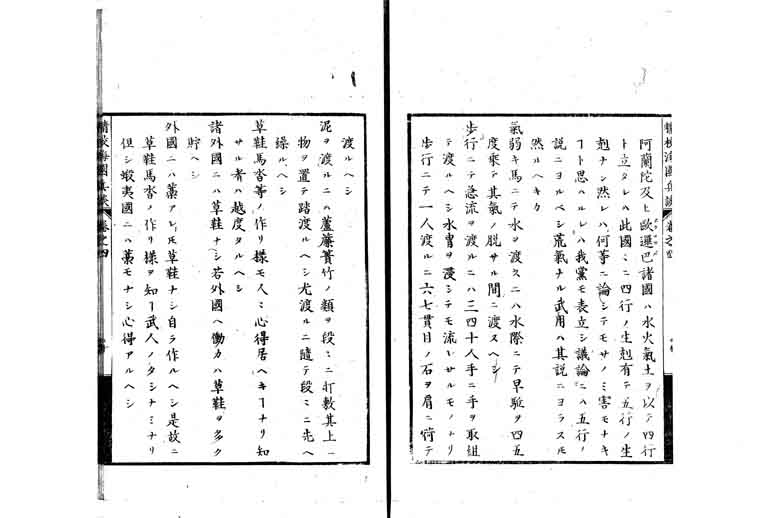 精校海國兵談 卷之四
阿蘭陀及ヒ歐邏巴諸國ハ水火氣土ヲ以テ四行
ト立タレハ此國ミニ四行ノ生剋有テ五行ノ生
剋ナシ然レハ何等ニ論シテモサノミ害モナキ
ヿト思ハルレハ我黨モ表立シ議論ニハ五行ノ
説ニヨルベシ荒氣ナル武用ハ其説ニヨラスモ
然ルヘキカ
氣弱キ馬ニテ水ヲ渡スニハ水際ニテ早駈ヲ四五
度乘テ其氣ノ脱サル間ニ渡スヘシ
歩行ニテ急流ヲ渡ルニハ三四十人手ニ手ヲ取組
テ渡ルヘシ水胷ヲ浸シテモ流レサルモノナリ
歩行ニテ一人渡ルニ六七貫目ノ石ヲ肩ニ荷テ
渡ルヘシ
泥ヲ渡ルニハ蘆簾簀竹ノ類ヲ段ミニ打敷其上ニ
物ヲ置テ踏渡ルヘシ尤渡ルニ隨テ段ミニ先ヘ
繰ルヘシ
草鞋馬沓等ノ作リ樣モ人ミ心得居ヘキヿナリ知
サル者ハ越度タルヘシ
諸外國ニハ草鞋ナシ若外國ヘ働カハ草鞋ヲ多ク
貯ヘシ
外國ニハ藁アレ𪜈草鞋ナシ自ラ作ルヘシ是故ニ
草鞋馬沓ノ作リ樣ヲ知ヿ武人ノタシナミナリ
但シ蝦夷國ニハ藁モナシ心得アルヘシ
精校海國兵談 卷之四